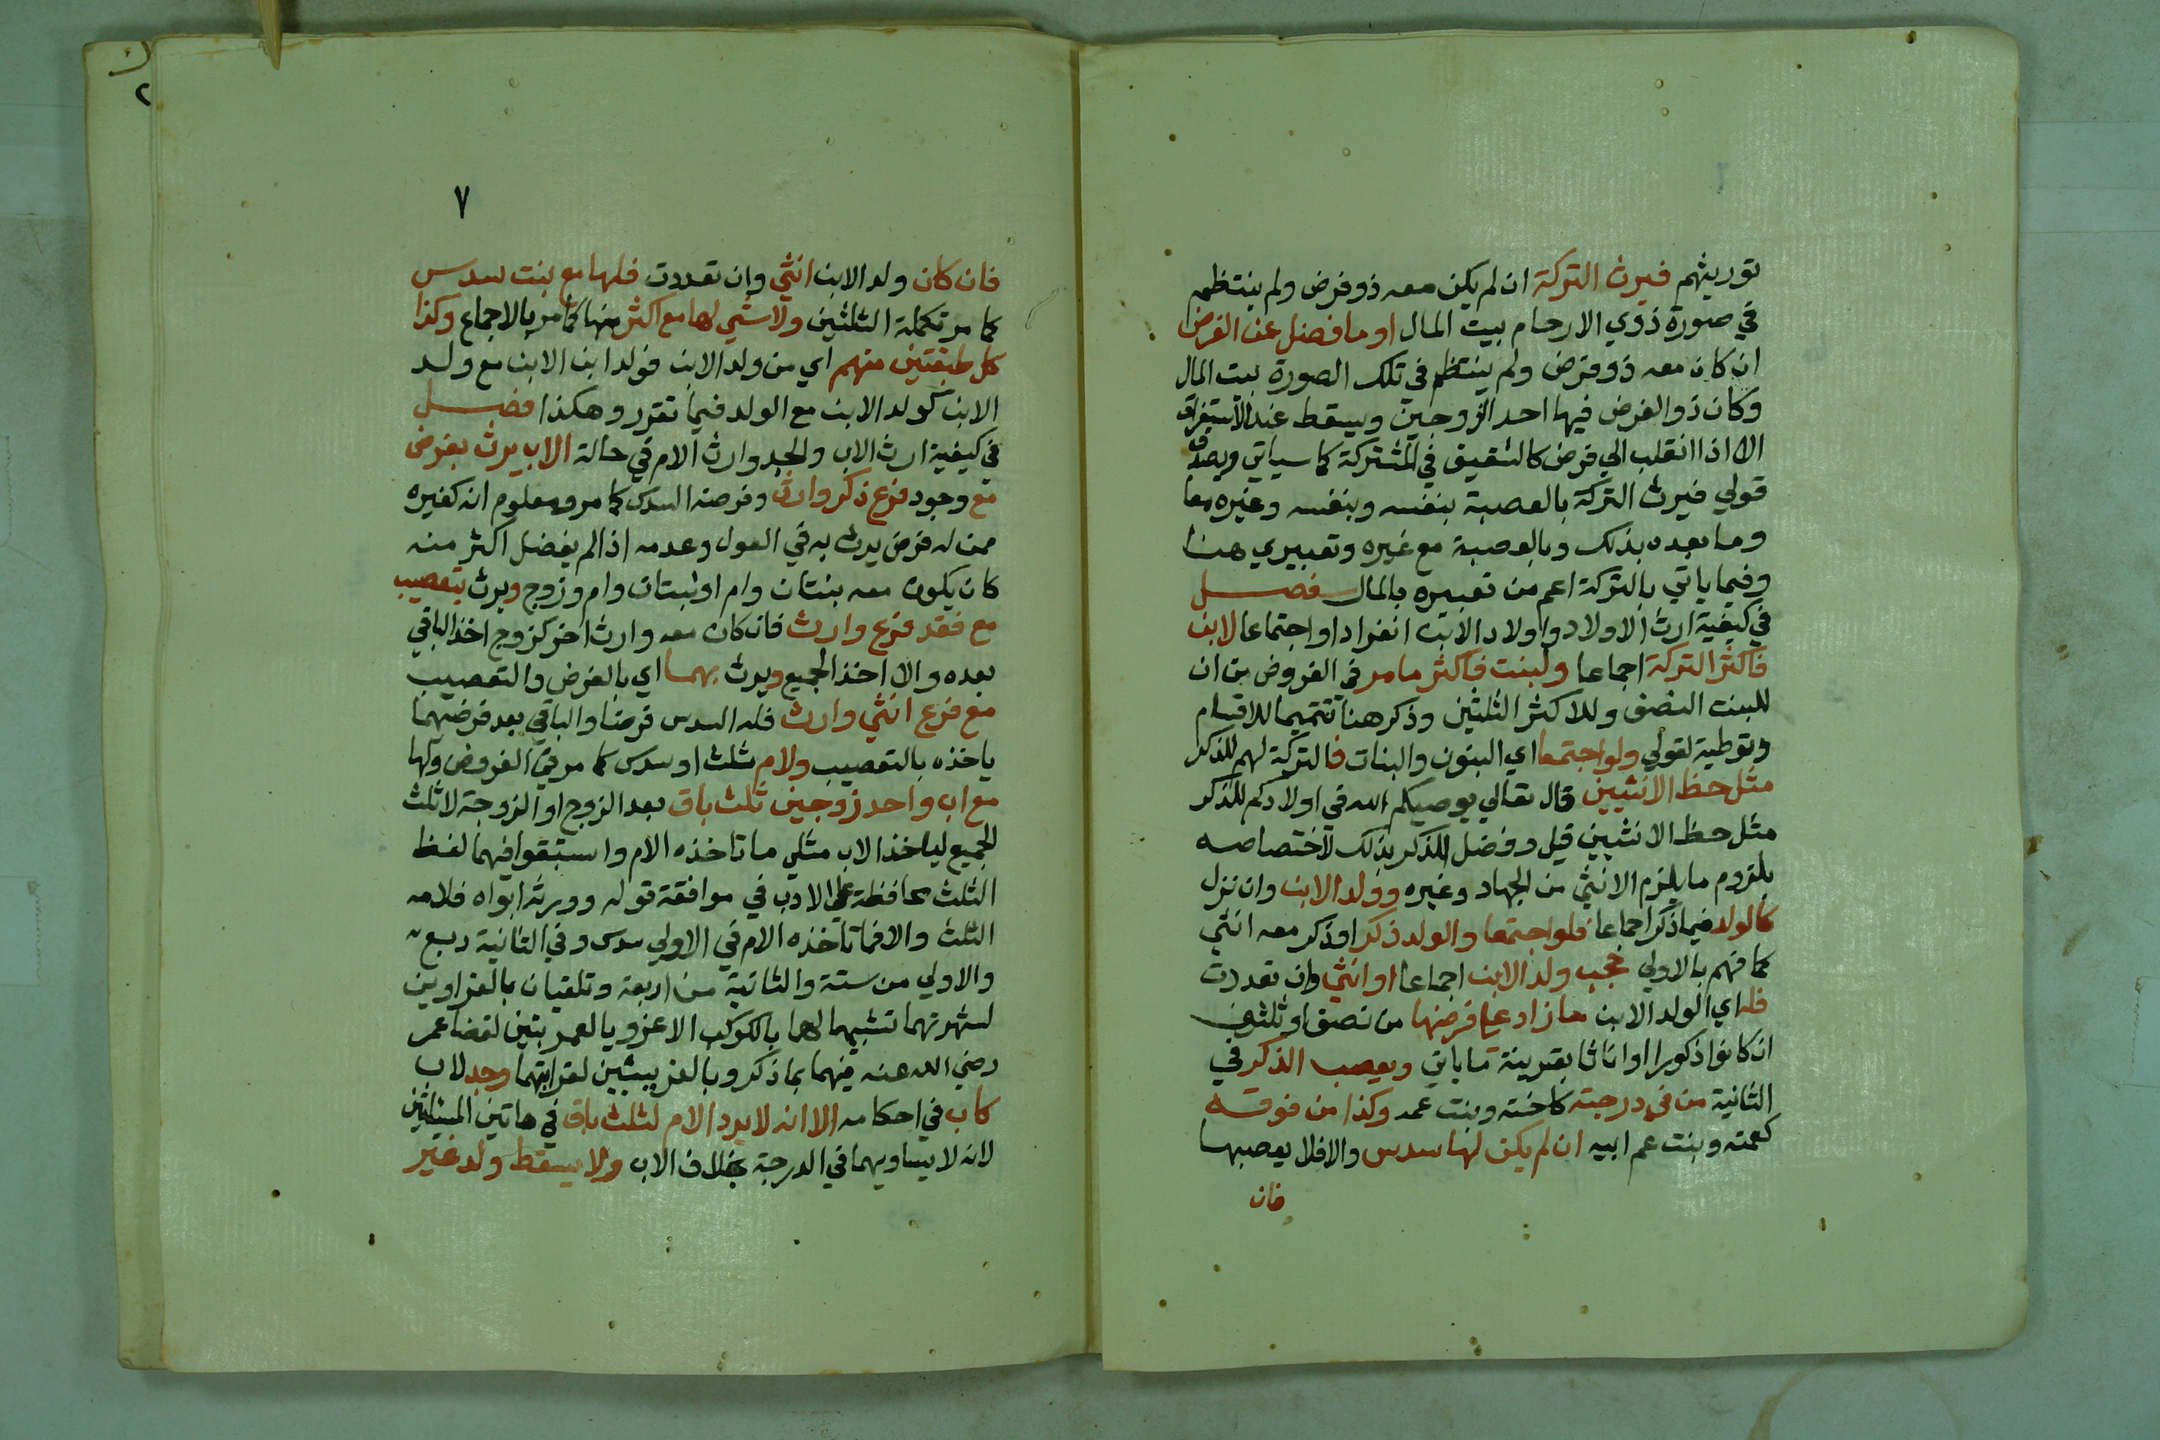 توريثهم فيرث التركة ان لم يكن معه ذو فرض ولم ينتظم
في صورة ذوي الارحام بيت المال او ما فضل عن الفرض
ان كان معه ذو فرض ولم ينتظم في تلك الصورة بيت المال
وكان ذو الفرض فيها احد الزوجين ويسقط عند الاستغراق
الا اذا انقلب الي فرض كالشقيق في المشتركة كما سياتي ويصدق
قولي فيرث التركة بالعصبة بنفسه وبنفسه وغيره معا
وما بعده بذلك وبالعصبة مع غيره وتعبيري هنا
وفيما ياتي بالتركة اعم من تعبيره بالمال فصل
في كيفية ارث الاولاد واولاد الابن انفرادا او اجتماعا لابن
فاكثر التركة اجماعا ولبنت فاكثر ما مر في الفروض من ان
للبنت النصف وللاكثر الثلثين وذكر هنا تتميما للاقسام
وتوطية لقولي ولو اجتمعا اي البنون والبنات فالتركة لهم للذكر
مثل حظ الانثيين قال تعالي يوصيكم الله في اولادكم للذكر
مثل حظ الانثيين قيل وفضل الذكر بذلك لاختصاصه
بلزوم ما يلزم الانثي من الجهاد وغيره وولد الابن وان نزل
كالولد فيما ذكر اجماعا فلو اجتمعا والولد ذكر او ذكر معه انثي
كما فهم بالاولي حجب ولد الابن اجماعا او انثي وان تعددت
فله اي الولد الابن ما زاد علي فرضها من نصف او ثلثين
ان كانوا ذكورا او اناثا بقرينة ما ياتي ويعصب الذكر في
الثانية من في درجته كاخته وبنت عمه وكذا من فوقه
كعمته وبنت عم ابيه ان لم يكن لها سدس والا فلا يعصبها
فان
٧
فان كان ولد الابن انثي وان تعددت فلها مع بنت سدس
كما مر تكملة الثلثين ولا شي لها مع اكثر منها كما مر بالاجماع وكذا
كل طبقتين منهم اي من ولد الابن فولد ابن الابن مع ولد
الابن كولد الابن مع الولد فيما تقرر وهكذا فصل
في كيفية ارث الاب والجد وارث الام في حالة الاب يرث بفرض
مع وجود فرع ذكر وارث وفرضه السدس كما مر ومعلوم انه كغيره
ممن له فرض يرث به في العول وعدمه اذا لم يفضل اكثر منه
كان يكون معه بنتان وام او بنتان وام وزوج ويرث بتعصيب
مع فقد فرع وارث فان كان معه وارث اخر كزوج اخذ الباقي
بعده والا اخذ الجميع ويرث بهما اي بالفرض والتعصيب
مع فرع انثي وارث فله السدس فرضا والباقي بعد فرضهما
ياخذه بالتعصيب ولام ثلث او سدس كما مر في الفروض ولها
مع اب واحد زوجين ثلث باق بعد الزوج او الزوجة لا ثلث
الجميع لياخذ الاب مثلي ما تاخذه الام واستبقوا فيهما لفظ
الثلث محافظة علي الادب في موافقة قوله وورثه ابواه فلامه
الثلث والا فما تاخذه الام في الاولي سدس وفي الثانية ربع
والاولي من ستة والثانية من اربعة وتلقبان بالغراوين
لشهرتهما تشبيها لهما بالكوكب الاغر وبالعمريتين لقضا عمر
رضي الله عنه فيهما بما ذكر وبالغريبتين لغرابتهما وجد لاب
كاب في احكامه الا انه لا يرد الام لثلث باق في هاتين المسئلتين
لانه لا يساويهما في الدرجة بخلاف الاب ولا يسقط ولد غير